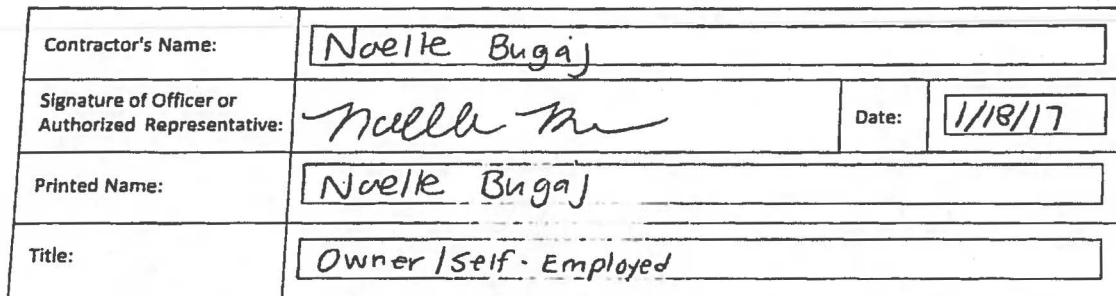 Contractor's Name: Noelle Bugaj
Signature of Officer or
Authorized Representative: Noelle Date: 1/18/17
Printed Name: Noelle Bugaj
Title: Owner / Self-Employed